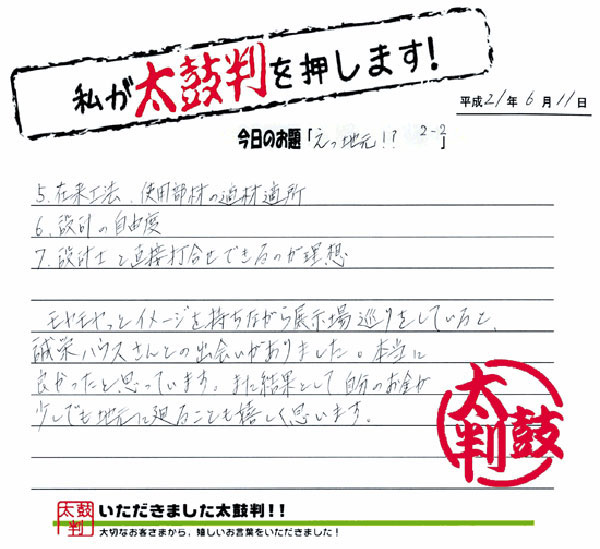 私が太鼓判を押します!
平成21年6月11日
今日のお題「えっ地元!? 2-2」
5.在来工法、使用部材の適材適所
6.設計の自由度
7.設計士と直接打合せできるのが理想
モヤモヤっとイメージを持ちながら展示場巡りをしていると、
誠栄ハウスさんとの出会いがありました。本当に
良かったと思っています。また結果として自分のお金が
少しでも地元に廻ることも嬉しく思います。
太鼓判
太鼓判
いただきました太鼓判!!
大切なお客さまから、嬉しいお言葉をいただきました!